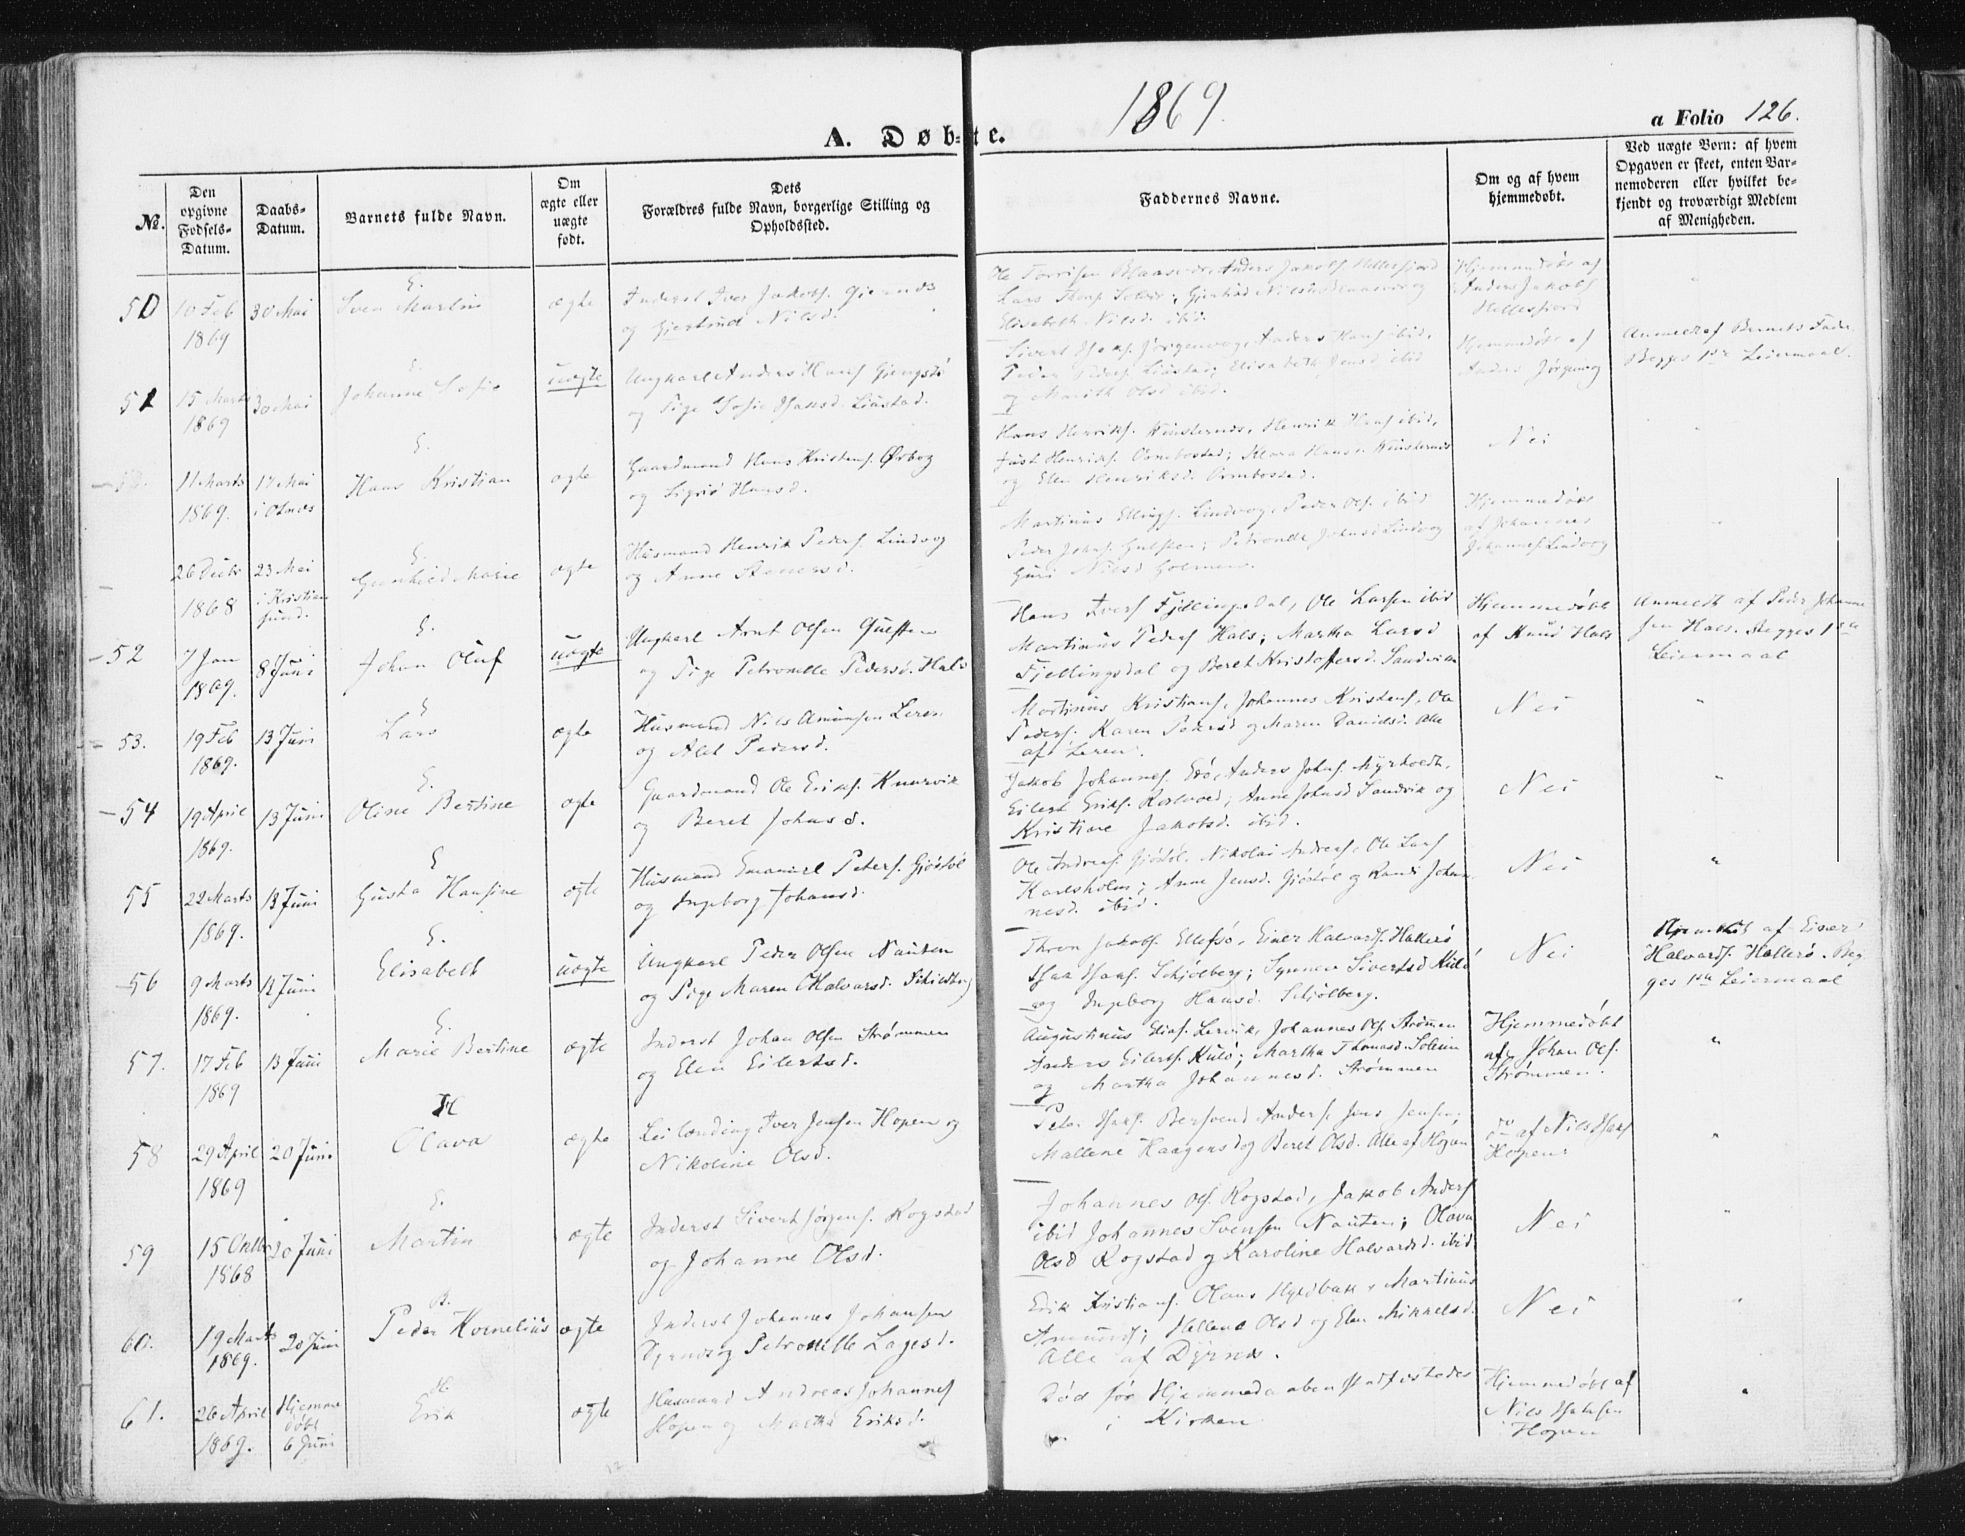 1869.
A. Døbte.
a Folio 126.
№.
Den opgivne Fødsels-Datum.
Daabs-Datum.
Barnets fulde Navn.
Om ægte eller uægte født.
Dets Forældres fulde Navn, borgerlige Stilling og Opholdssted.
Faddernes Navne.
Om og af hvem hjemmedøbt.
Ved uægte Børn: af hvem Opgaven er skeet, enten Barnemoderen eller hvilket bekjendt og troværdigt Medlem af Menigheden.
50
10 Feb
1869
30 Mai
E.
Sven Martin
ægte
Inderst Iver Jakobs.
og Gjertrud Nilsd.
Anders Jakobs. Hellesfjord
Lars
Elisabeth Nilsd. ibid.
Hjemmedøbt af
Anders Jakobs
Hellesfjord
51
15 Marts
1869
30 Mai
E.
Johanne Sofie
uægte
Ungkarl Anders Hans.
og Pige Sofie Isaksd. Liastad.
Sivert Isaks. Jørgenvog, Anders Hans. ibid,
Peder Peders. Liastad; Elisabeth Jensd ibid
og Marith Olsd ibid.
Hjemmedøbt af
Anders Jørgenvog
Anmeldt af Barnets Fader
Begges 1ste Leiermaal.
11 Marts
1869.
17 Mai
E.
Hans Kristian
ægte
Gaardmand Hans Kristens. Ørbog
og Sigrid Hansd.
Hans Henriks. Vinsternes, Henrik Hans ibid,
Just Henriks. Ormbostad; Klara Hansd Vinsternes
og Elen Henriksd. Ormbostad.
Nei
26 Decbr
1868
23 Mai
i Kristian
sund.
E.
Gunhild Marie
ægte
Husmand Henrik Peders. Lindvog
og Anne
Martinus Ellings. Lindvog, Peder Ols. ibid
Peder Johns. Gulsten; Petronelle Johnsd Lindvog
Guri Nilsd Holmen.
Hjemmedøbt
af Johannes
Johannes. Lindvog
52
7 Jan
1869.
8 Juni
E.
Johan Oluf
uægte
Ungkarl Arnt Olsen Gulsten
og Pige Petronelle Pedersd. Hals
Hans Ivers Fjellingsdal, Ole Larsen ibid
Martinus Peders Hals; Martha Larsd
Fjellingsdal og Beret Kristoffersd. Sandvik
Hjemmedøbt
af Knud Hals
Anmeldt af Peder Johanne
sen Hals. Begges 1ste
Leiermaal
53.
19 Feb
1869.
13 Juni
E
Lars
ægte
Husmand Nils Amundsen Leren
og Alet Pedersd.
Martinus Kristians, Johannes Kristens, Ole
Peders. Karen Pedersd og Maren Davidsd. Alle
af Leren.
Nei
"
54
19 April
1869.
13 Juni
E.
Oline Bertine
ægte
Gaardmand Ole Eriks. Knurvik
og Beret Johnsd.
Jakob Johannes. Edø, Anders Johns. Myrholdt,
Eilert Eriks. Rosvold; Anne Johnsd Sandvik og
Kristiane Jakobsd. ibid.
Nei
"
55
22 Marts
1869.
13 Juni
E
Gusta Hansine
ægte
Husmand Emanuel Peters. Gjøstøl
og Ingeborg Johansd.
Ole Anders. Gjøstøl, Nikolai Anders, Ole Lars
Karlsholm; Anne Jensd. Gjøstøl og Randi Johan
nesd. ibid.
Nei
"
56
9 Marts
1869.
13 Juni
E.
Elisabelt
uægte
Ungkarl Peder Olsen Nauten
og Pige Maren Halvarsd.
Thron Jakobs. Ellefsø, Einer Halvards. Hallerø
Isaa Isaks. Schjølberg; Synnev Sivertsd Kulø
og Ingeborg Hansd. Schjølberg.
Nei
Hjemmedøbt af Einer
Halvards. Hallerø. Beg
ges 1ste Leiermaal
57.
17 Feb
1869
13 Juni
E.
Marie Bertine
ægte
Inderst Johan Olsen Strømmen
og Elen Eilertsd.
Augustinus Lervik, Johannes Ols Strømen
Anders Eilerts. Kulø; Martha Thomasd. Soleim
og Martha Johannesd. Strømmen
Hjemmedøbt
af Johan Ols.
Strømmen.
"
58
29 April
1869
20 Juni
H
Olava
ægte
Leilænding Iver Jensen Hopen og
Nikoline Olsd.
Peter Isaks. Bersvend Anders. Jens Jensen;
Mallene Haagensd og Beret Olsd. Alle af Hopen
do af Nils Isaks
Hopen.
"
59
15 Oktbr
1868
20 Juni
E.
Martin
ægte
Inderst Sivert Jørgens. Rogstad
og Johanne Olsd.
Johannes Ols. Rogstad, Jakob Anders
ibid Johannes Svensen Nauten; Olava
Olsd Rogstad og Karoline Halvardsd. ibid.
Nei
"
60.
19 Marts
1869.
20 Juni
B.
Peder Kornelius
ægte
Inderst Johannes Johansen
Dyrnes og Petronelle Lagesd.
Erik Kristians. Olaus Hyldbak, Martinus
Amunds; Hellene Olsd og Elen Mikkelsd.
Alle af Dyrnes.
Nei
"
61.
26 April
1869.
Hjemme
døbt
6 Juni
H.
Erik
ægte
Husmand Andreas Johannes
Hopen og Martha Eriksd.
Død før Hjemmedaaben stadfæstedes
i Kirken
Hjemmedøbt af
Nils Isaksen
Hopen
"